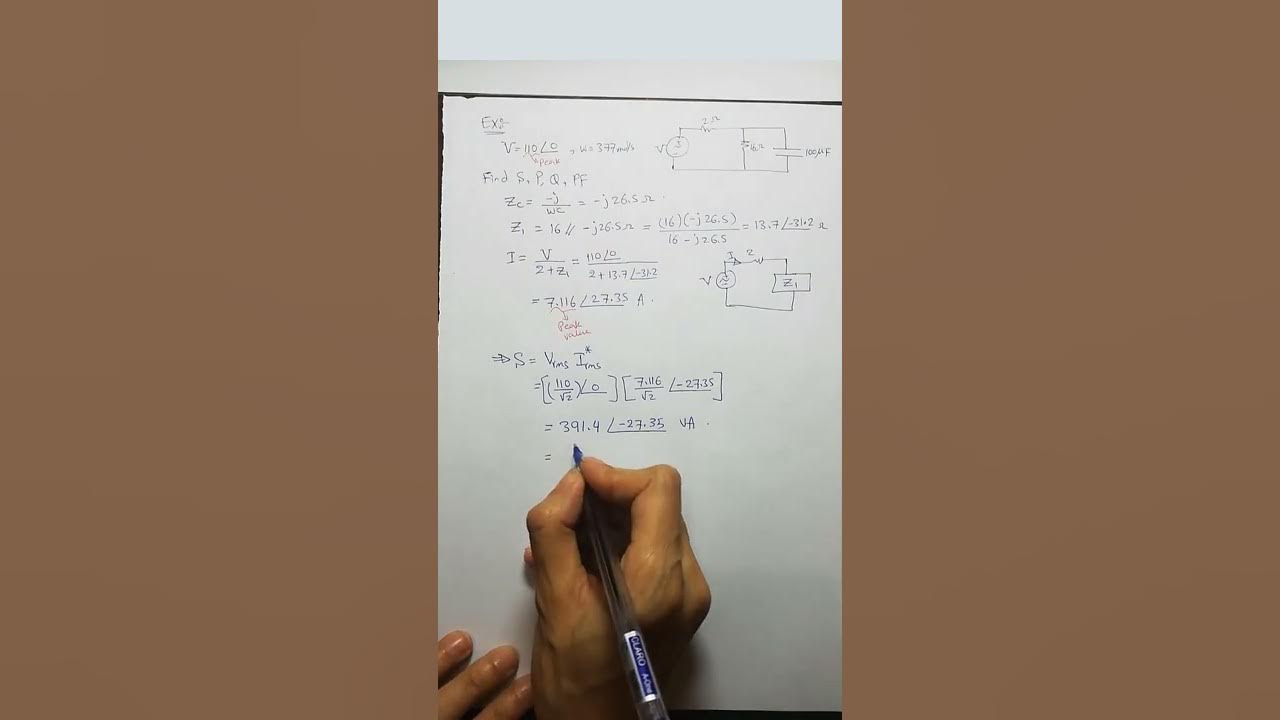 Ex:-
V = 110∠0 , w = 377 rad/s
Peak
2Ω
V
16Ω
100μF
Find S, P, Q, PF
Zc = -j/wC = -j26.5 Ω.
Z1 = 16 // -j26.5Ω = (16)(-j26.5)/16 - j26.5 = 13.7∠-31.2 Ω
I = V/2+Z1 = 110∠0/2+13.7∠-31.2
I 2
V
Z1
= 7.116∠27.35 A.
Peak
value
⇒ S = Vrms I*rms
= [(110/√2)∠0] [7.116/√2 ∠-27.35]
= 391.4 ∠-27.35 VA.
=
CLARO